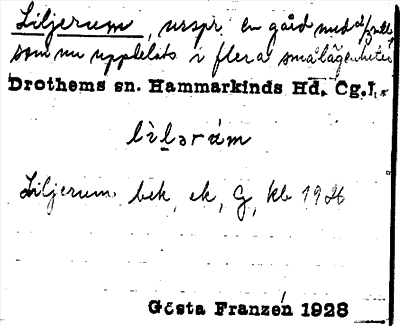 Liljerum, urspr. en gård med
som nu upplåtits i flera smålägenheter
Drothems sn. Hammarkinds Hd. Ög.l.
lìlərúm
Liljerum bek, ek, G, kb 1926
Gösta Franzén 1928